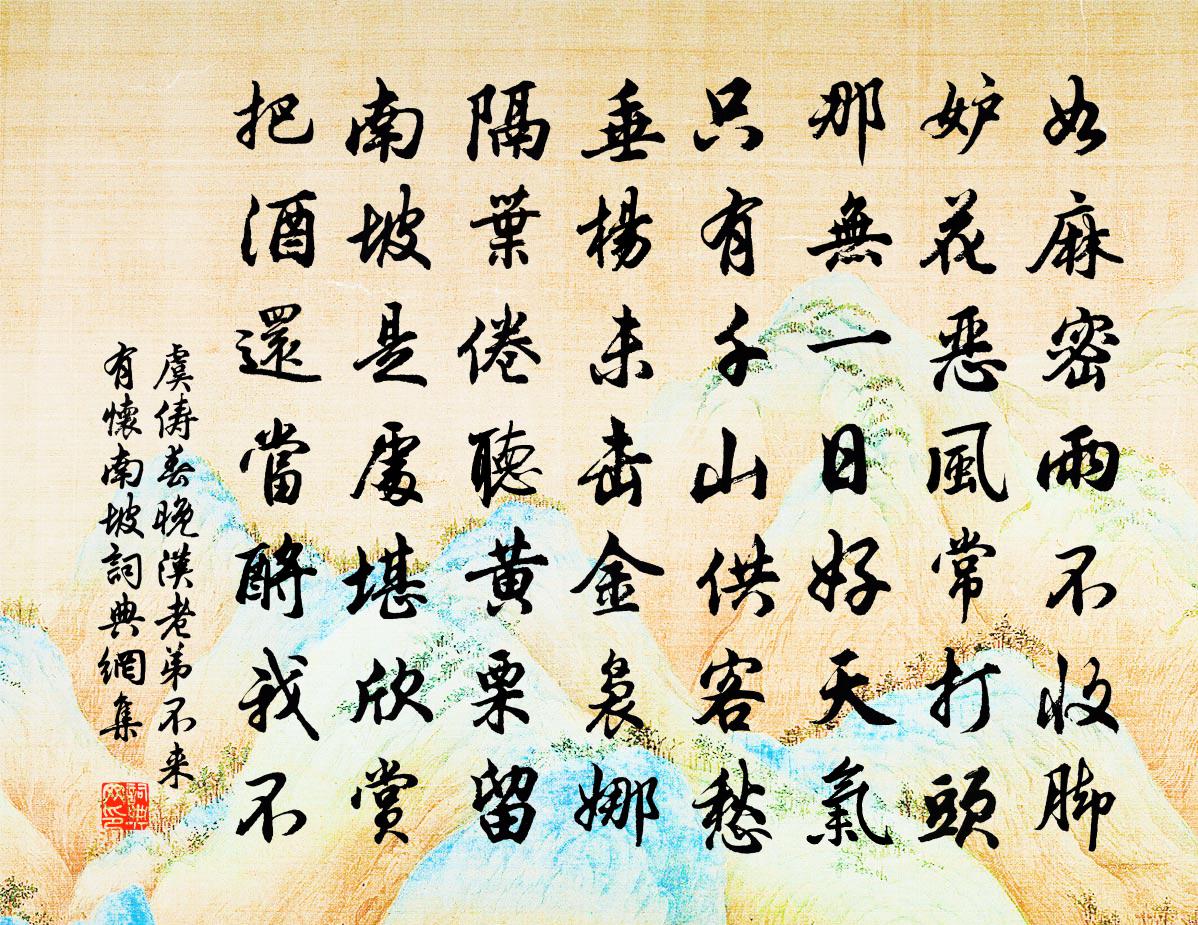 如麻密雨不收脚
妒花恶風常打頭
那無一日好天氣
只有千山供客愁
垂楊未击金袅娜
隔葉倦聽黄栗留
南坡是處堪欣賞
把酒還當酹我不
虞俦春晚漢老弟不来
有懷南坡詞典網集